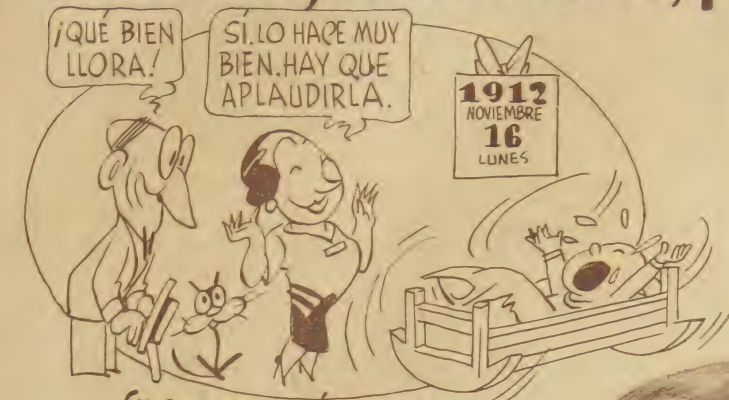 ¡QUÉ BIEN
LLORA!
SÍ. LO HACE MUY
BIEN. HAY QUE
APLAUDIRLA.
1912
NOVIEMBRE
16
LUNES